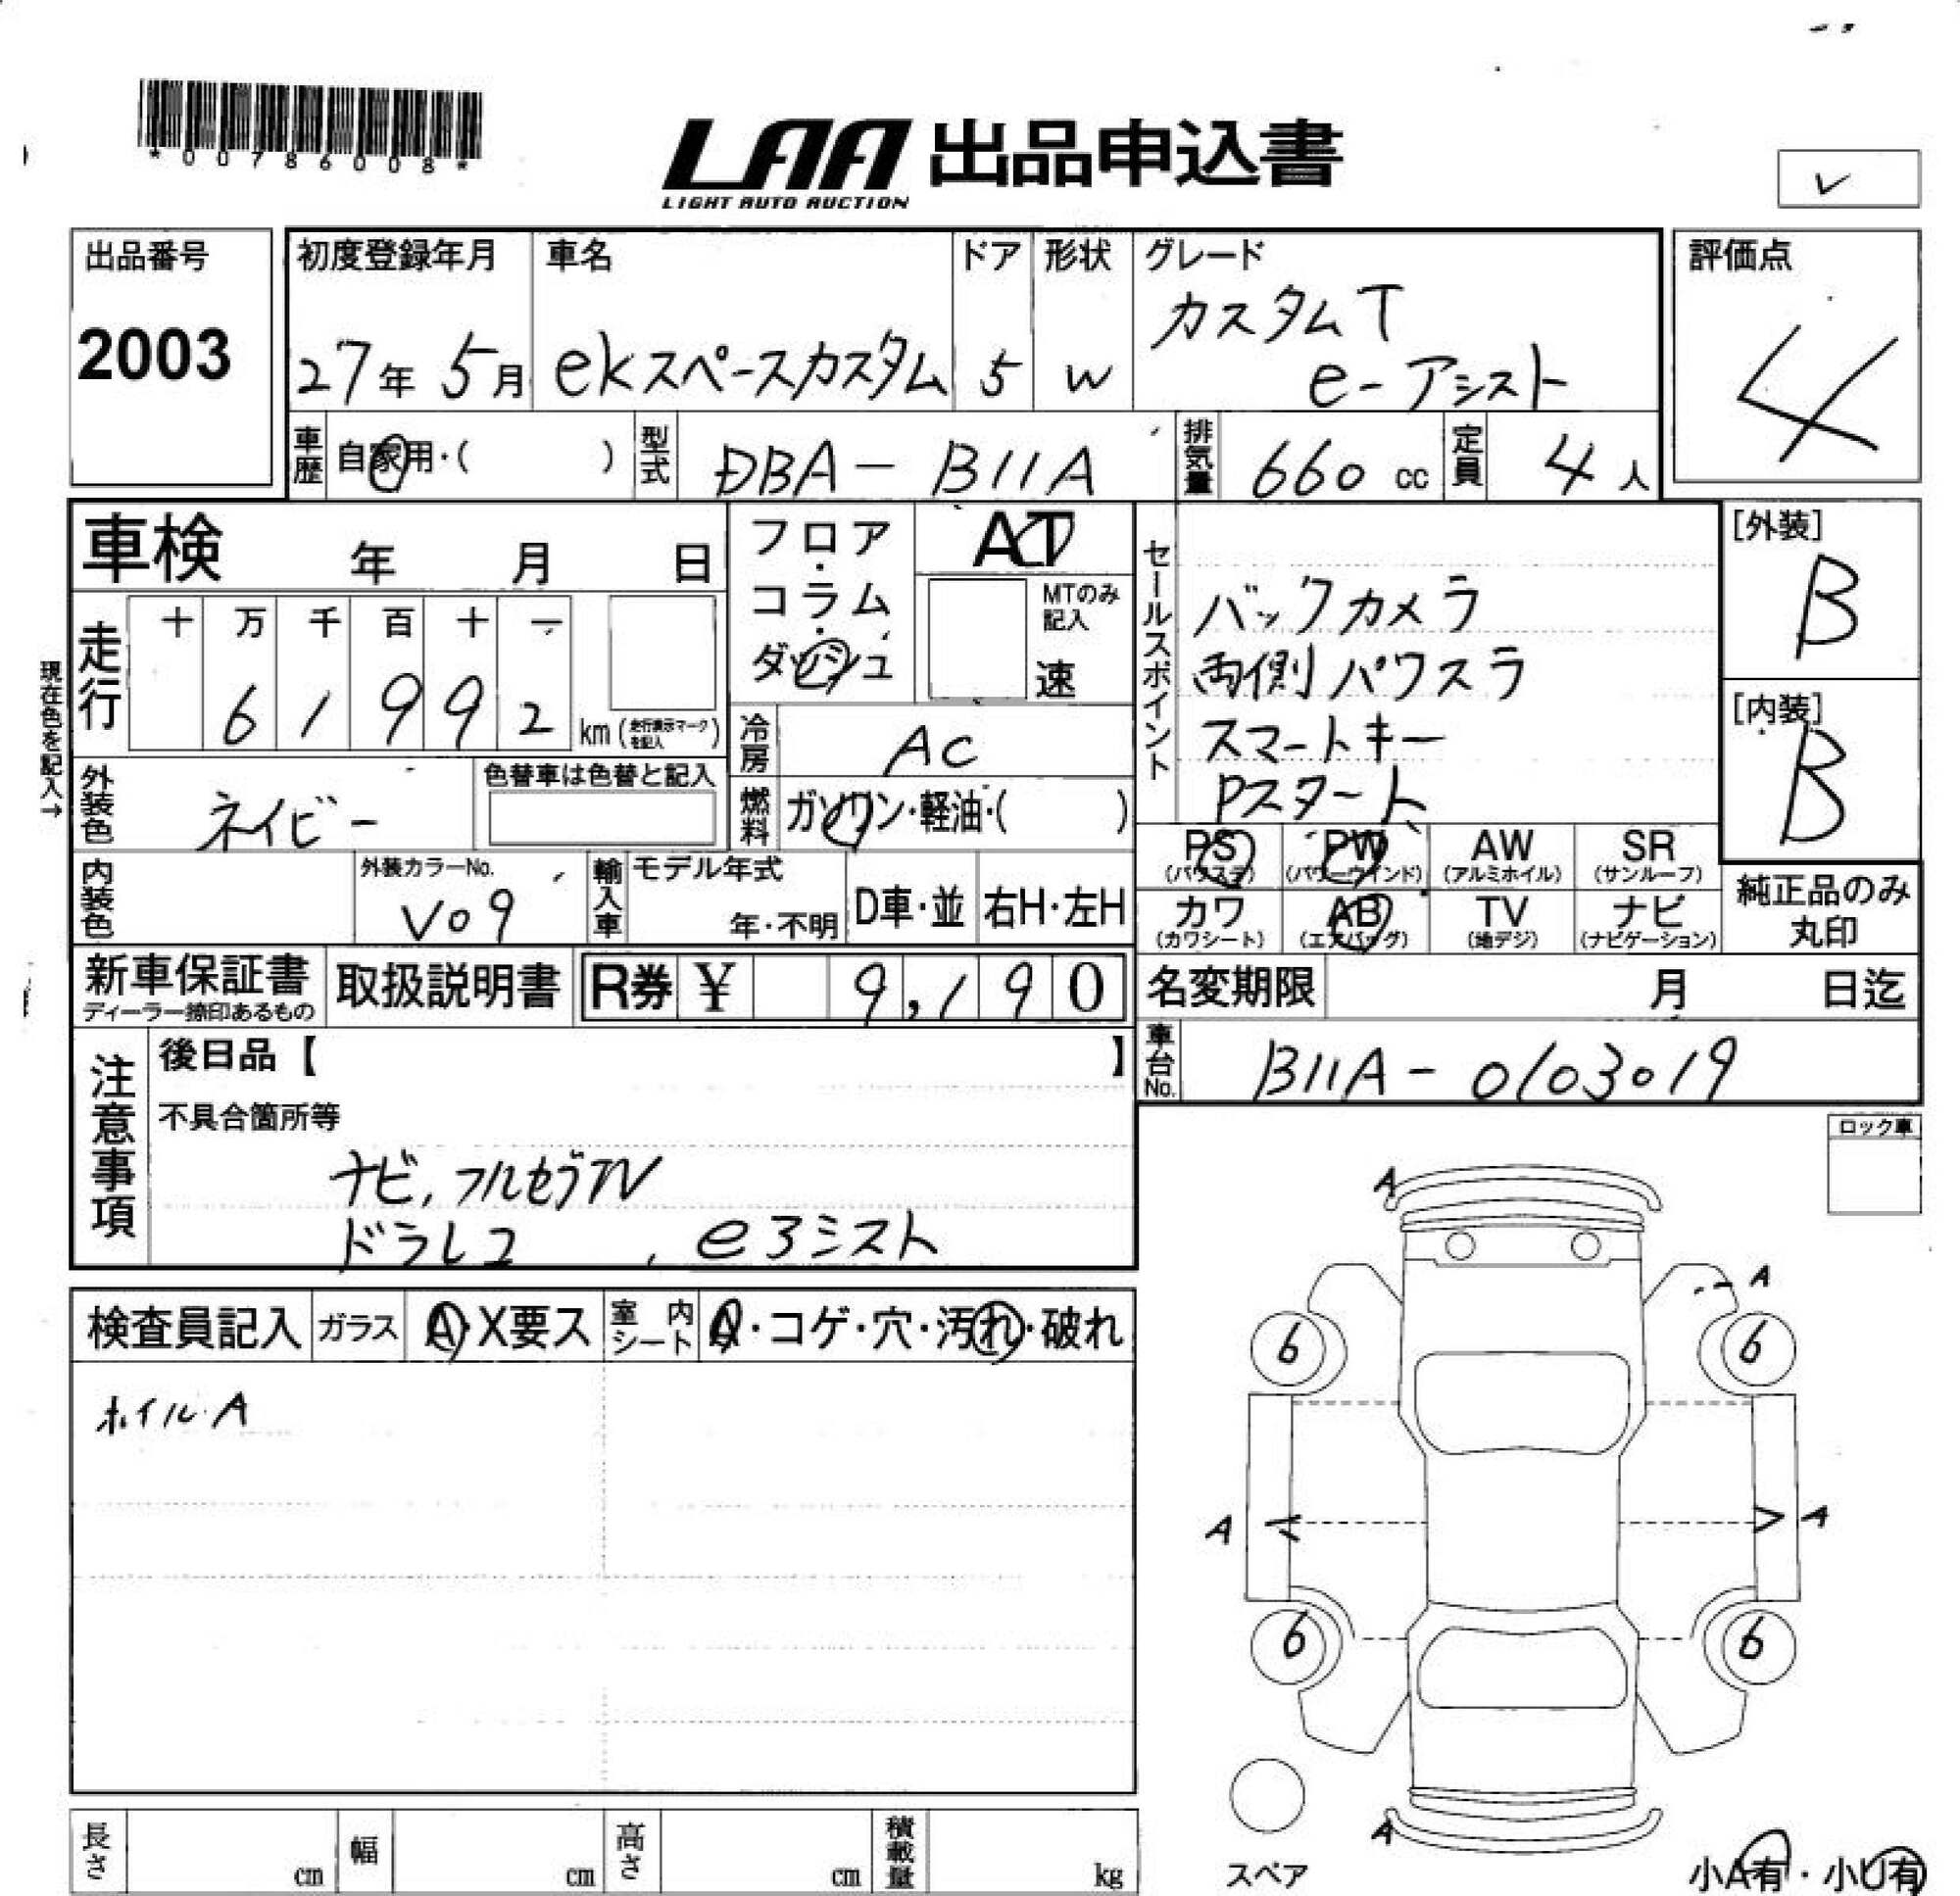 *00786008*
LAA 出品申込書
LIGHT AUTO AUCTION
✓
出品番号
2003
初度登録年月
27年 5月
車名
ekスペースカスタム
ドア
5
形状
W
グレード
カスタムT
e-アシスト
評価点
4
車歴
自家用・( )
型式
DBA-B11A
排気量
660 cc
定員
4人
車検 年 月 日
フロア・
コラム・
ダッシュ
AT
MTのみ
記入
速
走行
十 万 千 百 十 一
6 1 9 9 2
km(走行表示マークを記入)
現在色を記入→
冷房
AC
外装色
ネイビー
色替車は色替と記入
燃料
ガソリン・軽油・( )
内装色
外装カラーNo.
V09
輸入車
モデル年式
年・不明
D車・並
右H・左H
セールスポイント
バックカメラ
両側パワスラ
スマートキー
Pスタート
PS
(パワステ)
PW
(パワーウインド)
AW
(アルミホイル)
SR
(サンルーフ)
カワ
(カワシート)
AB
(エアバッグ)
TV
(地デジ)
ナビ
(ナビゲーション)
[外装]
B
[内装]
B
純正品のみ
丸印
新車保証書
ディーラー捺印あるもの
取扱説明書
R券 ¥ 9,190
名変期限 月 日迄
車台No.
B11A-0103019
注意事項
後日品【 】
不具合箇所等
ナビ,フルセグTV
ドラレコ
ロック車
検査員記入
ガラス
A・X要ス
室内シート
A・コゲ・穴・汚れ・破れ
ホイルA
A
A
6 6
A A
6 6
A
スペア
小A有・小U有
長さ cm
幅 cm
高さ cm
積載量 kg